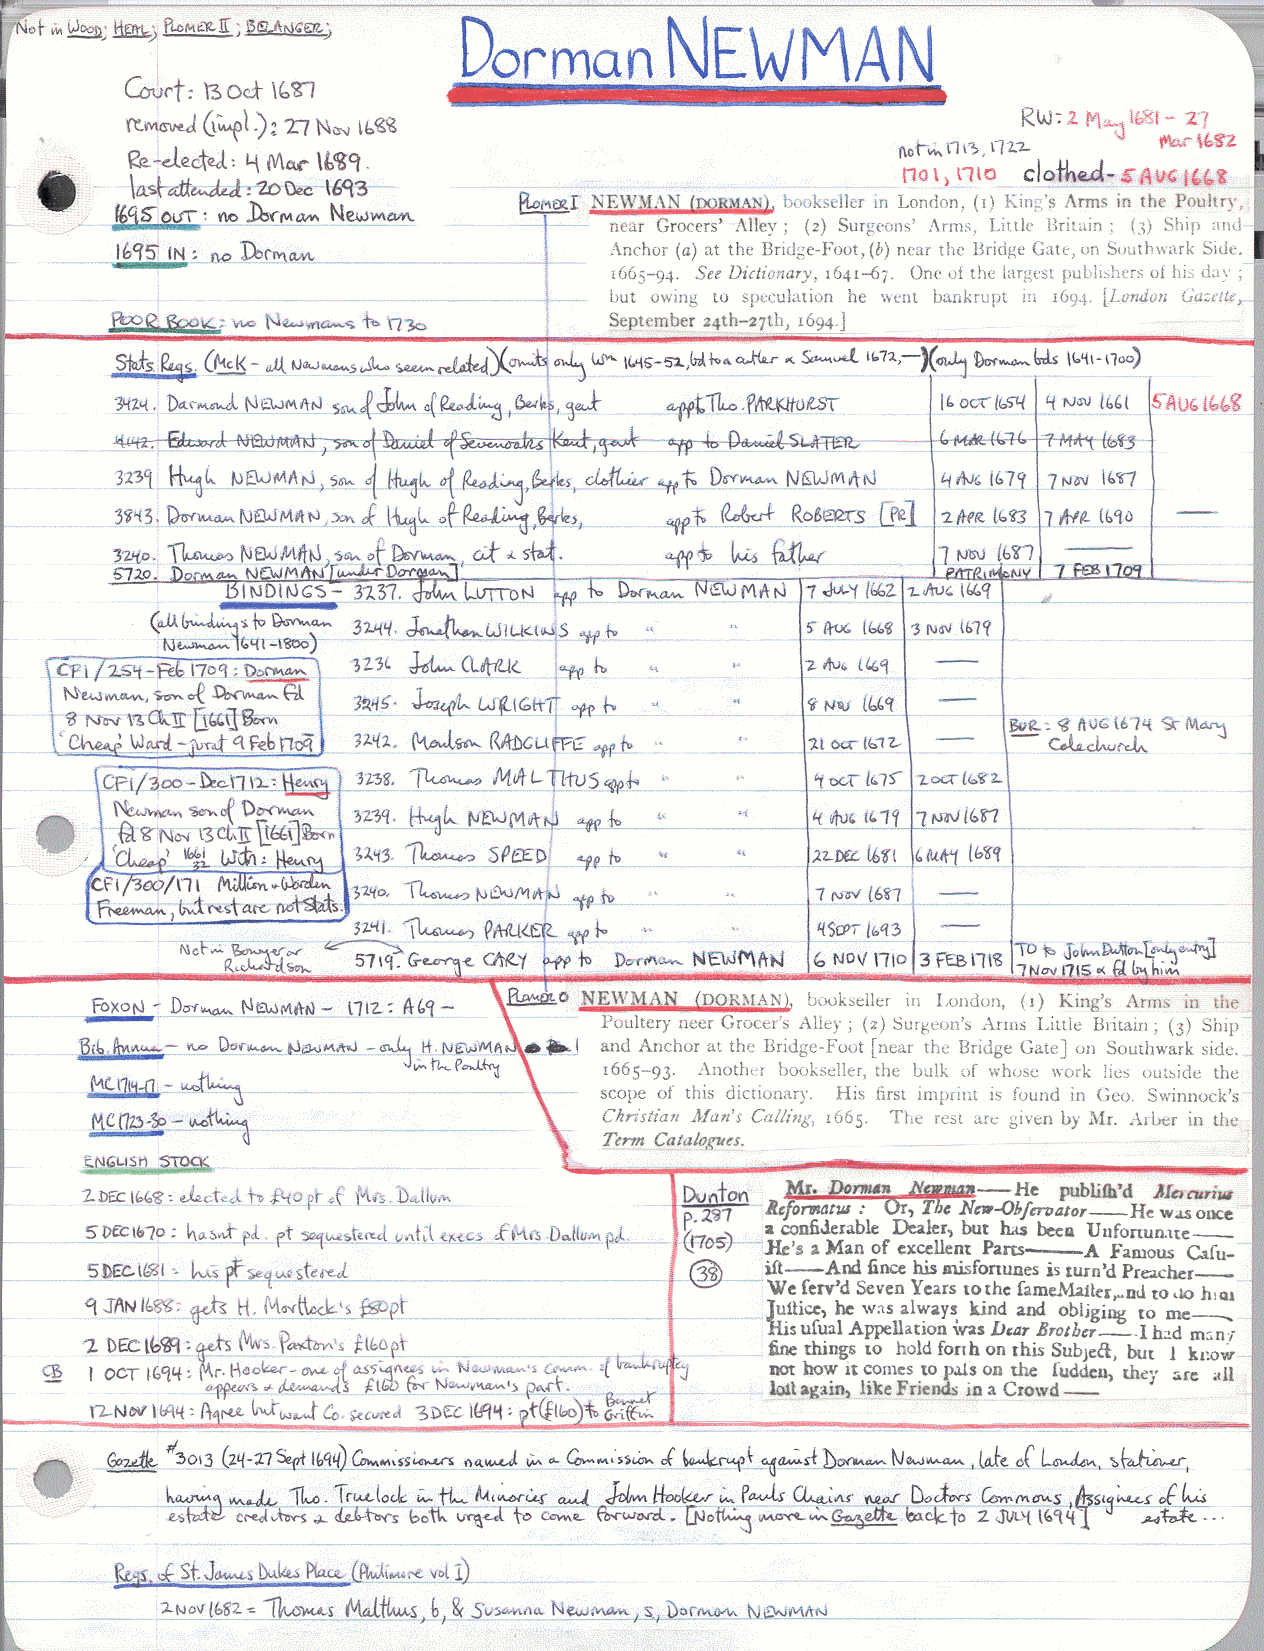 Not in WOOD; HEAL; PLOMER II; BELANGER;
Dorman NEWMAN
Court: 13 Oct 1687
removed (impl.): 27 Nov 1688
Re-elected: 4 Mar 1689.
last attended: 20 Dec 1693
1695 OUT: no Dorman Newman
1695 IN: no Dorman
POOR BOOK: no Newmans to 1730
RW: 2 May 1681 - 27
Mar 1682
not in 1713, 1722
1701, 1710 clothed - 5 AUG 1668
PLOMER I NEWMAN (DORMAN), bookseller in London, (1) King's Arms in the Poultry,
near Grocers' Alley; (2) Surgeons' Arms, Little Britain; (3) Ship and
Anchor (a) at the Bridge-Foot, (b) near the Bridge Gate, on Southwark Side.
1665-94. See Dictionary, 1641-67. One of the largest publishers of his day;
but owing to speculation he went bankrupt in 1694. [London Gazette,
September 24th-27th, 1694.]
Stats. Regs. (McK - all Newmans who seem related) (omits only Wm 1645-52, bd to a cutler & Samuel 1672, —) (only Dorman bds 1641-1700)
3424. Darmond NEWMAN son of John of Reading, Berks, gent app to Tho. PARKHURST 16 OCT 1654 4 NOV 1661 5 AUG 1668
4142. Edward NEWMAN, son of Daniel of Sevenoaks Kent, gent app to Daniel SLATER 6 MAR 1676 7 MAY 1683
3239 Hugh NEWMAN, son of Hugh of Reading, Berks, clothier app to Dorman NEWMAN 4 AUG 1679 7 NOV 1687
3843. Dorman NEWMAN, son of Hugh of Reading, Berks, app to Robert ROBERTS [PR] 2 APR 1683 7 APR 1690 —
3240. Thomas NEWMAN, son of Dorman, cit & stat. app to his father 7 NOV 1687 —
5720. Dorman NEWMAN [under Dorman] PATRIMONY 7 FEB 1709
BINDINGS - 3237. John LUTTON app to Dorman NEWMAN 7 JULY 1662 2 AUG 1669
(all bindings to Dorman
Newman 1641-1800)
3244. Jonathan WILKINS app to " " 5 AUG 1668 3 NOV 1679
3236 John CLARK app to " " 2 AUG 1669 —
3245. Joseph WRIGHT app to " " 8 NOV 1669 —
3242. Moulson RADCLIFFE app to " " 21 OCT 1672 —
BUR: 8 AUG 1674 St Mary
Colechurch
3238. Thomas MALTHUS app to " " 4 OCT 1675 2 OCT 1682
3239. Hugh NEWMAN app to " " 4 AUG 1679 7 NOV 1687
3243. Thomas SPEED app to " " 22 DEC 1681 6 MAY 1689
3240. Thomas NEWMAN app to " " 7 NOV 1687 —
3241. Thomas PARKER app to " " 4 SEPT 1693 —
5719. George CARY app to Dorman NEWMAN 6 NOV 1710 3 FEB 1718 TO to John Dutton [only entry]
7 Nov 1715 & fd by him
Not in Bowyer or
Richardson
CF1/254 - Feb 1709: Dorman
Newman, son of Dorman fd
8 Nov 13 Ch II [1661] Born
'Cheap' Ward - jurat 9 Feb 1709
CF1/300 - Dec 1712: Henry
Newman son of Dorman
fd 8 Nov 13 Ch II [1661] Born
'Cheap' With: Henry
CF1/300/171 Million & Worden
Freeman, but rest are not Stats.
FOXON - Dorman NEWMAN - 1712: A69 -
Bib. Annua - no Dorman NEWMAN - only H. NEWMAN
in the Poultry
MC1714-17 - nothing
MC1723-30 - nothing
PLOMER O NEWMAN (DORMAN), bookseller in London, (1) King's Arms in the
Poultery neer Grocer's Alley; (2) Surgeon's Arms Little Britain; (3) Ship
and Anchor at the Bridge-Foot [near the Bridge Gate] on Southwark side.
1665-93. Another bookseller, the bulk of whose work lies outside the
scope of this dictionary. His first imprint is found in Geo. Swinnock's
Christian Man's Calling, 1665. The rest are given by Mr. Arber in the
Term Catalogues.
ENGLISH STOCK
2 DEC 1668: elected to £40 pt of Mrs. Dallum
5 DEC 1670: hasnt pd. pt sequestered until execs of Mrs. Dallum pd.
5 DEC 1681 - his pt sequestered
9 JAN 1688: gets H. Mortlock's £80 pt
2 DEC 1689: gets Mrs. Paxton's £160 pt
CB 1 OCT 1694: Mr. Hooker - one of assignees in Newman's Comm. of bankruptcy
appears & demands £160 for Newman's part.
12 NOV 1694: Agree but want Co. secured 3 DEC 1694: pt (£160) to Bennet
Griffin
Dunton
p. 287
(1705)
38
Mr. Dorman Newman—He publish'd Mercurius
Reformatus: Or, The New-Observator—He was once
a considerable Dealer, but has been Unfortunate—
He's a Man of excellent Parts—A Famous Casu-
ist—And since his misfortunes is turn'd Preacher—
We serv'd Seven Years to the same Master, and to do him
Justice, he was always kind and obliging to me—
His usual Appellation was Dear Brother—I had many
fine things to hold forth on this Subject, but I know
not how it comes to pass on the sudden, they are all
lost again, like Friends in a Crowd—
Gazette #3013 (24-27 Sept 1694) Commissioners named in a Commission of bankrupt against Dorman Newman, late of London, stationer,
having made Tho. Truelock in the Minories and John Hooker in Pauls Chains near Doctors Commons, Assignees of his
estate creditors & debtors both urged to come forward. [Nothing more in Gazette back to 2 JULY 1694] estate...
Regs. of St. James Dukes Place (Philimore vol I)
2 NOV 1682 = Thomas Malthus, b, & Susanna Newman, s, Dorman NEWMAN